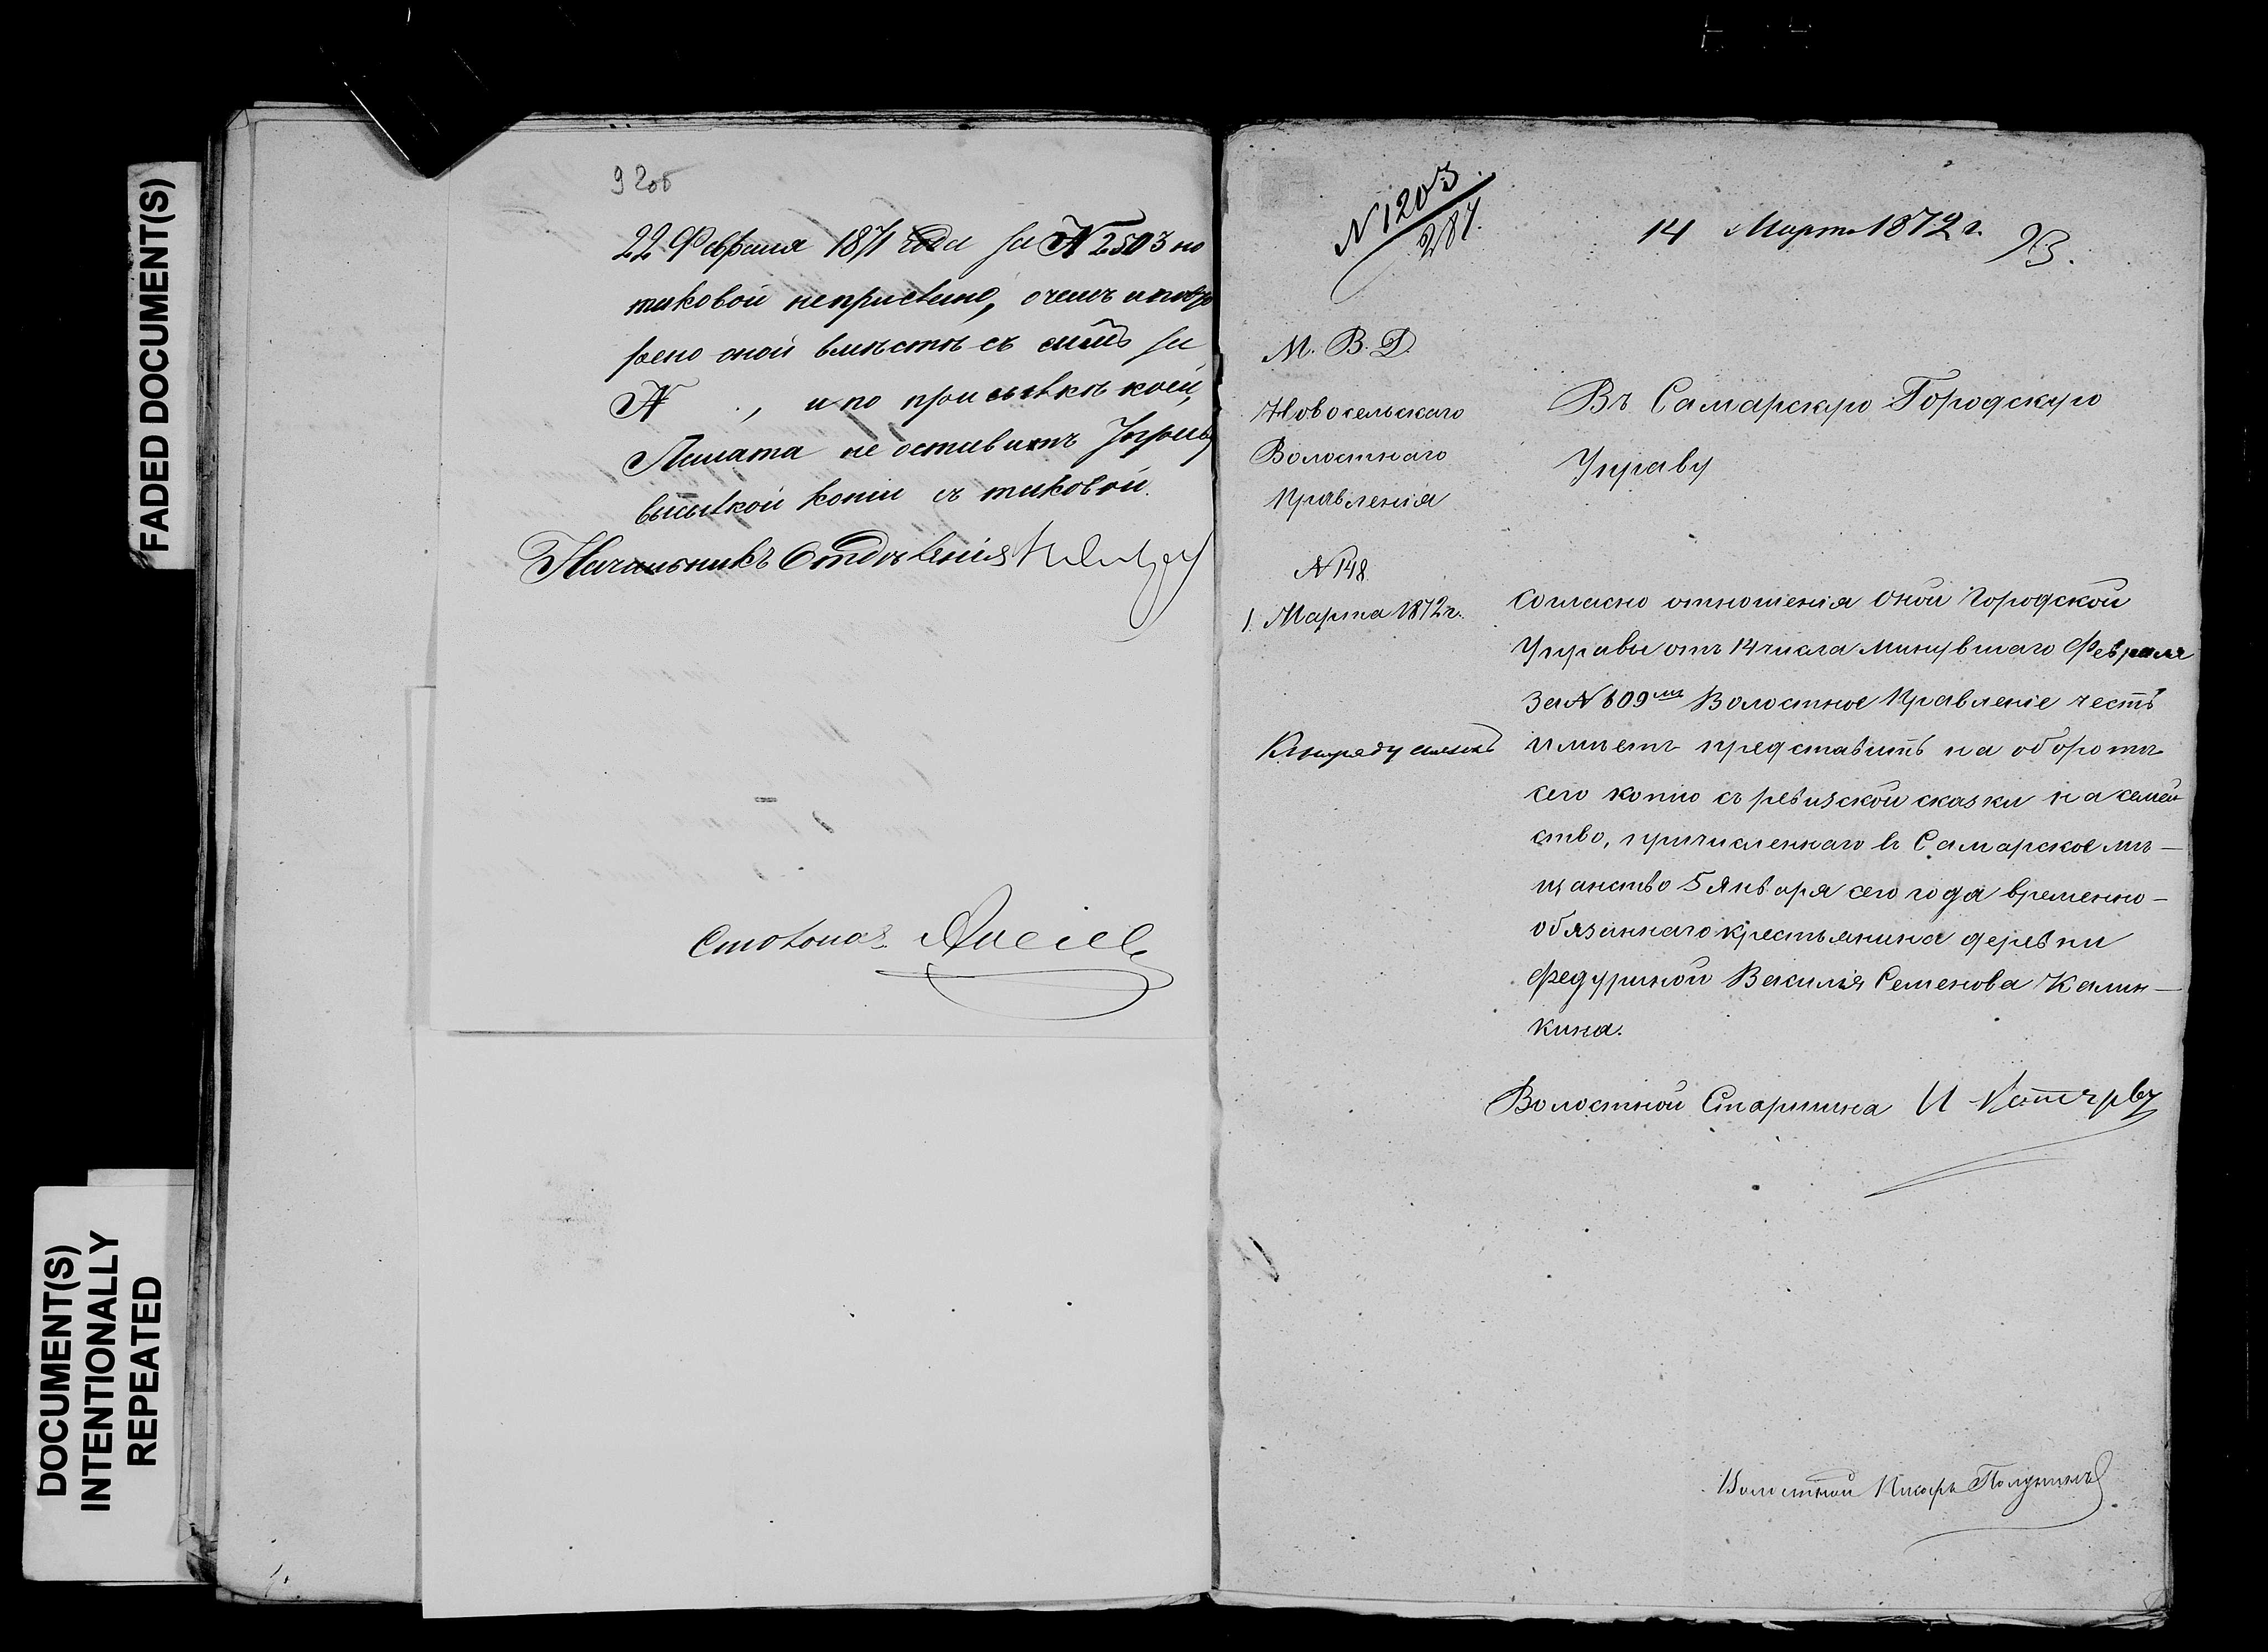 FADED DOCUMENT(S)
DOCUMENT(S)
INTENTIONALLY
REPEATED
92об
22 Февраля 1871 года за № 2503 но
таковой неприслано, о чемъ и повто
рено оной вместѣ съ симъ за
№ , и по присылкѣ коей,
Палата не оставитъ Управу
высылкой копіи съ таковой.
Начальникъ Отдѣленія
Столонач.
№ 1203.
287.
14 Марта 1872 г.
93.
М. В. Д.
Новосельскаго
Волостнаго
Правленія
№ 148
1. Марта 1872 г.
Въ Самарскую Городскую
Управу
Согласно отношенія Оной Городской
Управы отъ 14 числа минувшаго Февраля
За № 609мъ Волостное Правленіе честь
имѣетъ представить на оборотѣ
сего копію съ ревизской сказки на семей
ство, причисленнаго въ Самарское мѣ-
щанство 5 Января сего года временно-
обязаннаго крестьянина деревни
Федуриной Василія Семенова Калин-
кина.
Волостной Старшина И
Волостной Писарь Полунинъ